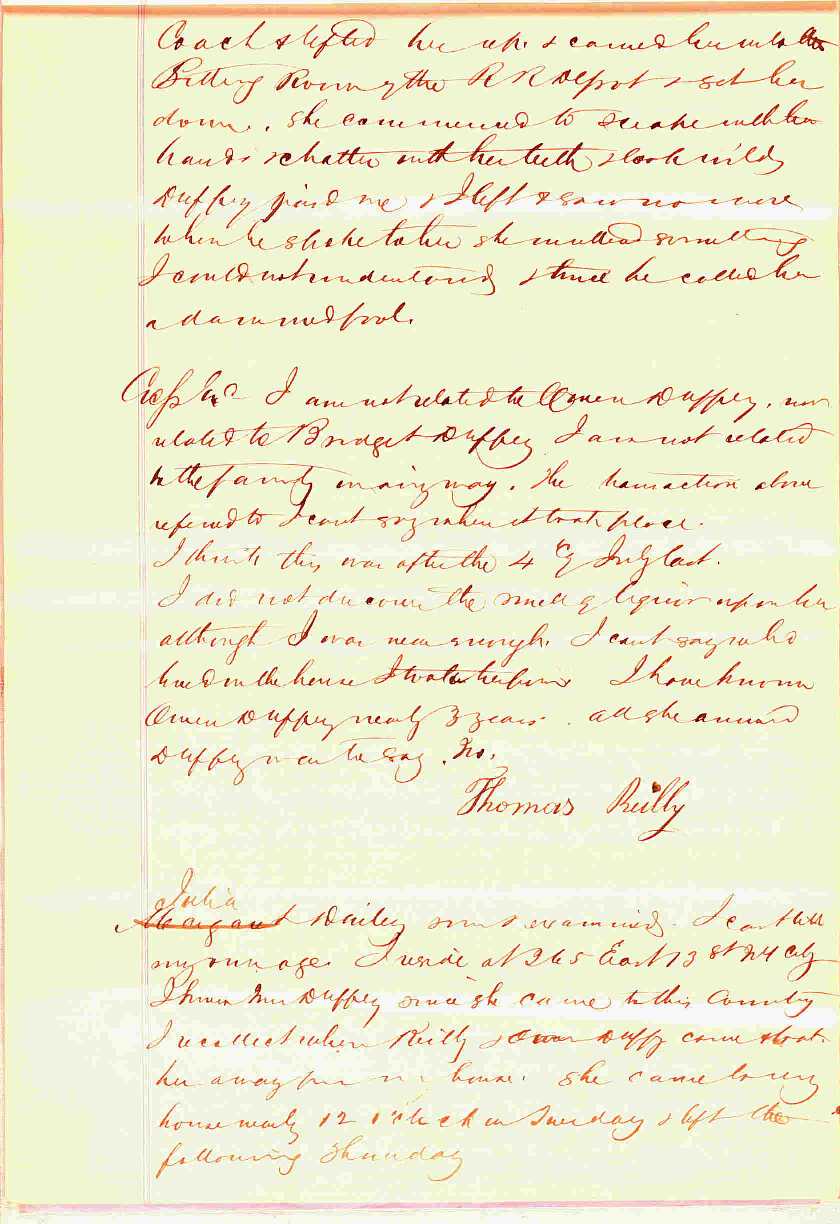 Coach & lifted her up & carried her into the
Sitting Room of the R R Depot & set her
down, she commenced to shake with her
hands & chatter with her teeth & look wildly
Duffey paid me & I left & saw no more
when he spoke to her she muttered something
I could not understand & then he called her
a damned fool.
Cross Exd I am not related to Owen Duffey, nor
related to Bridget Duffey I am not related
to the family in any way. The transaction above
refered to I cant say when it took place.
I think this was after the 4th of July last.
I did not discover the smell of liquor upon her
although I was near enough. I cant say who
lived in the house I took her from I have known
Owen Duffey nearly 3 years. all she answered
Duffey was to say, No.
Thomas Reilly
Julia
Margaret Dailey sworn & examined. I cant tell
my own age. I reside at 265 East 13 St N Y City
I know Mrs Duffey since she came to this Country
I recollect when Reilly & Owen Duffy came & took
her away from my house. She came to my
house nearly 12 o'clock on Tuesday & left the
following Thursday